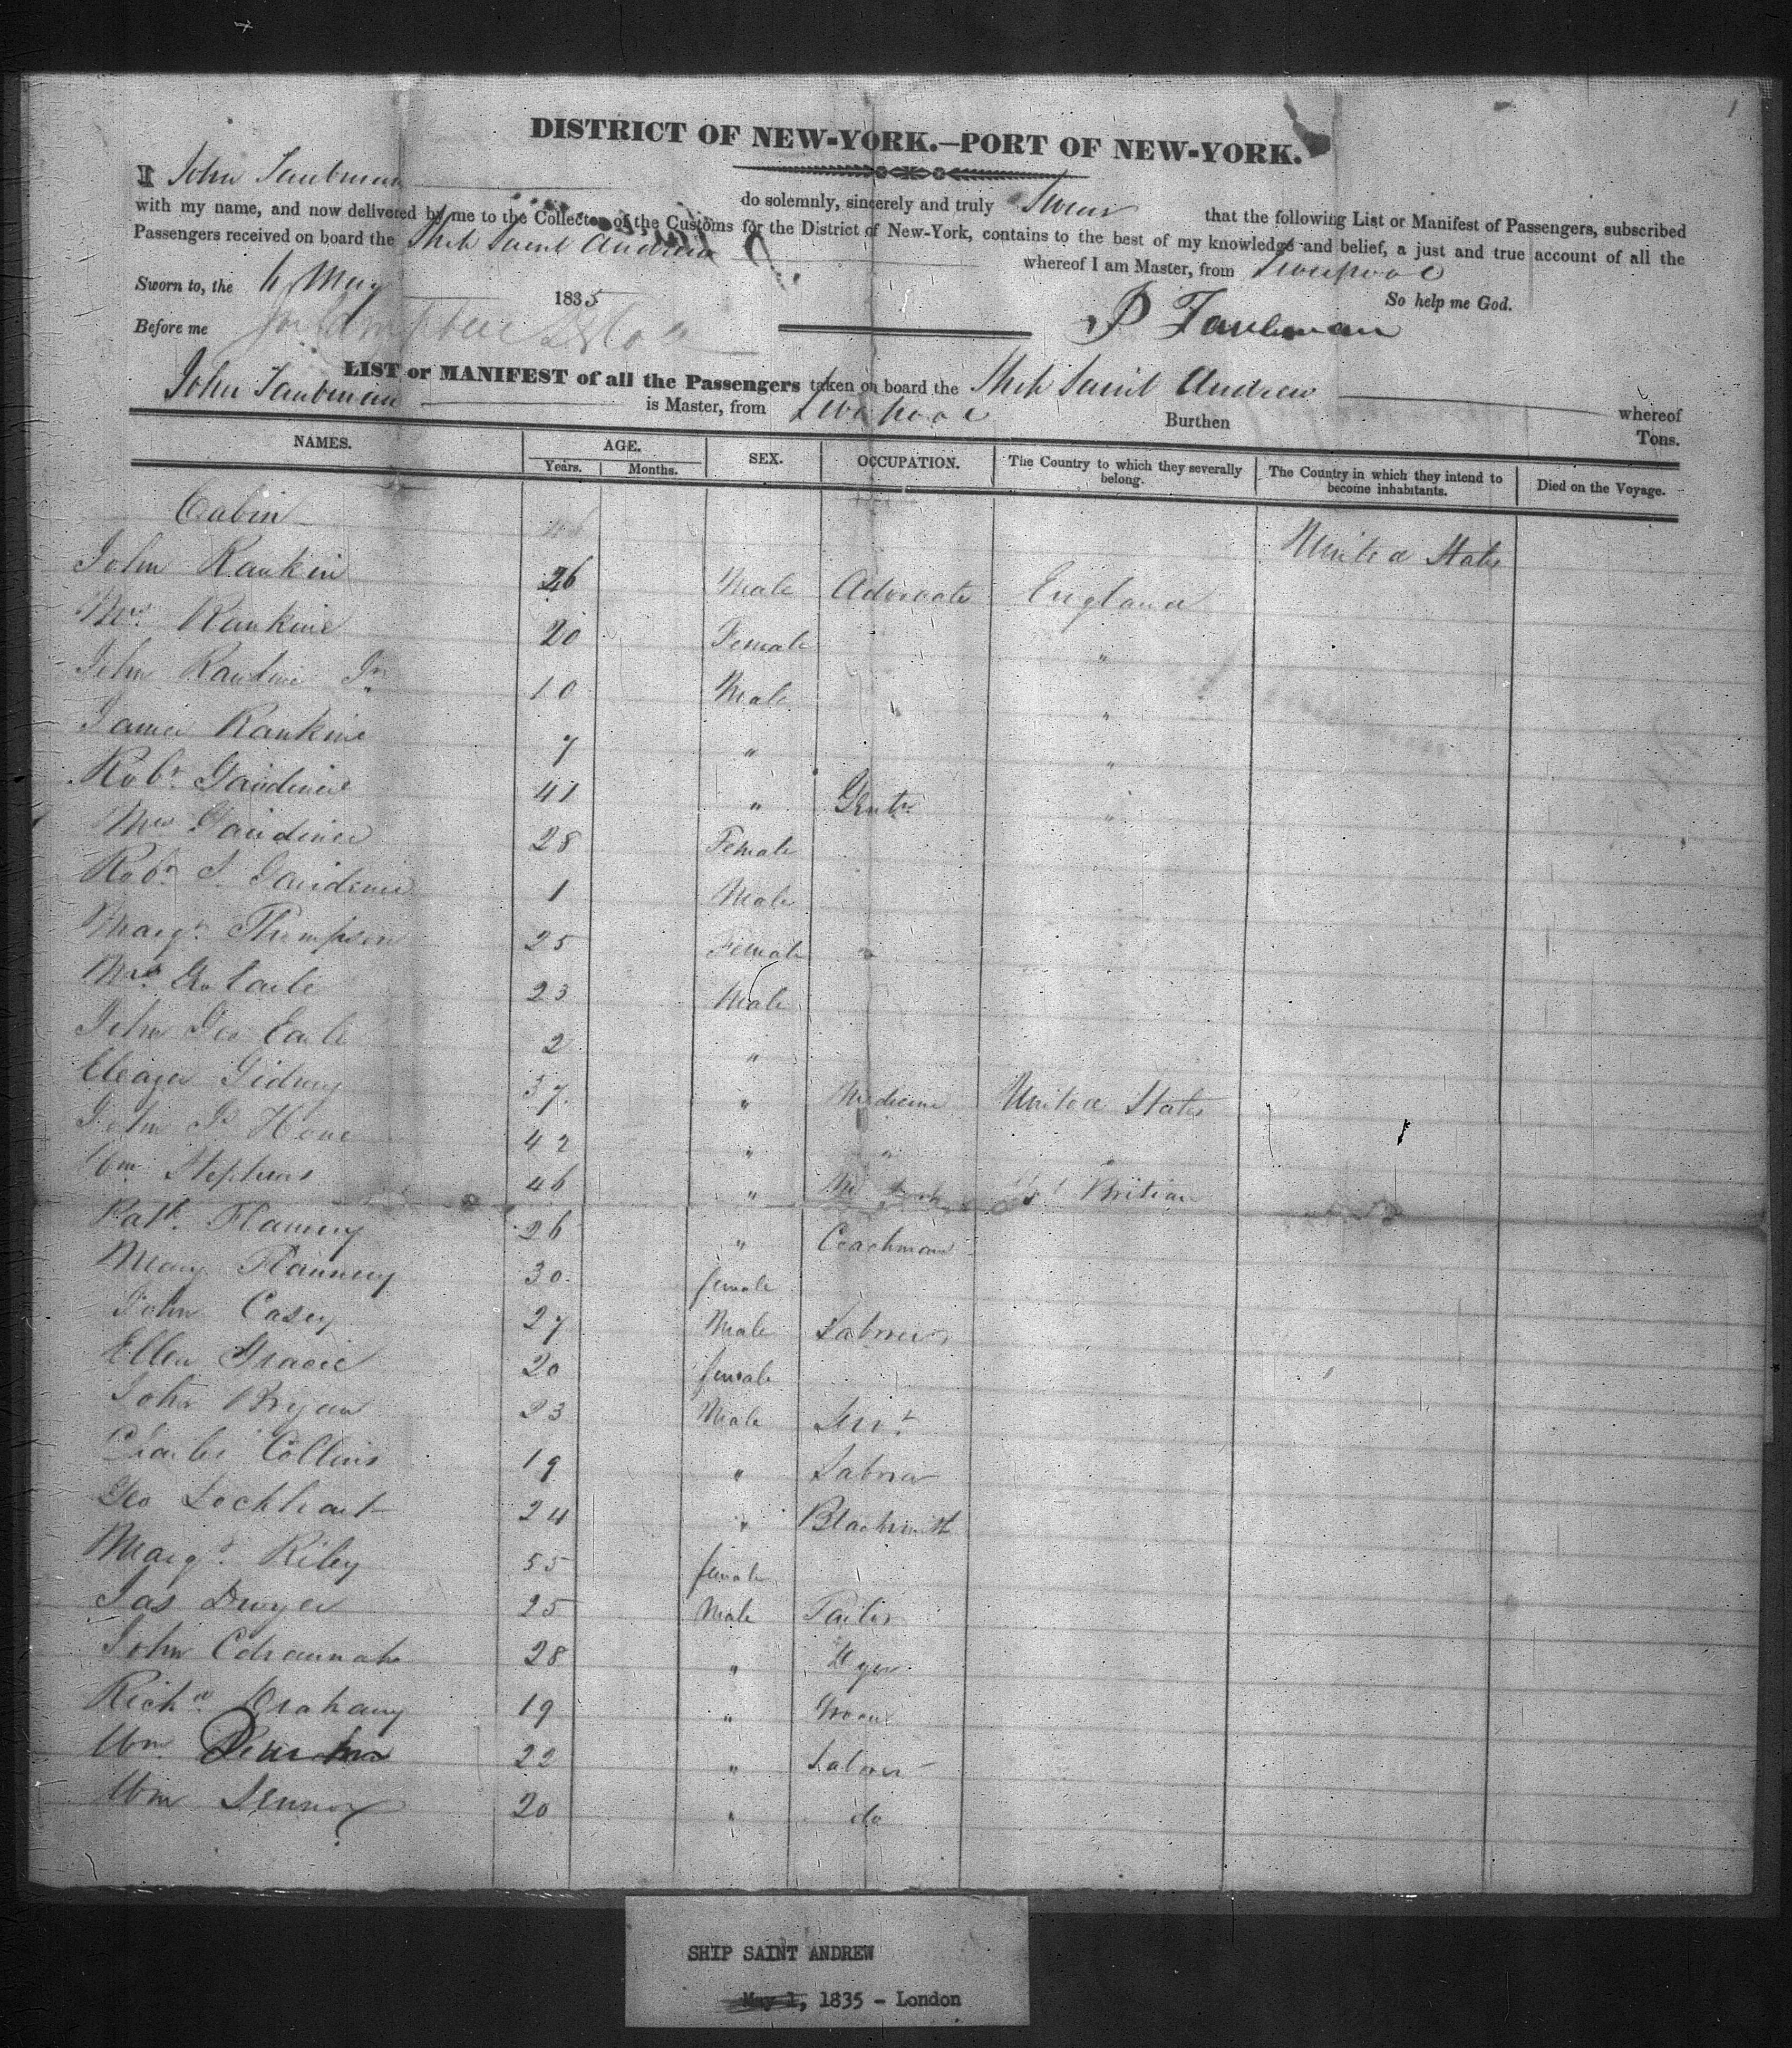 DISTRICT OF NEW-YORK.—PORT OF NEW-YORK.
I John Taubman do solemnly, sincerely and truly Swear that the following List or Manifest of Passengers, subscribed
with my name, and now delivered by me to the Collector of the Customs for the District of New-York, contains to the best of my knowledge and belief, a just and true account of all the
Passengers received on board the Ship Saint Andrew whereof I am Master, from Liverpool
Sworn to, the May 1835 So help me God.
Before me J Taubman
LIST or MANIFEST of all the Passengers taken on board the Ship Saint Andrew whereof
John Taubman is Master, from Liverpool Burthen Tons.
NAMES. AGE. Years. Months. SEX. OCCUPATION. The Country to which they severally belong. The Country in which they intend to become inhabitants. Died on the Voyage.
Cabin United States
John Rankin 26 Male Advocate England
Mrs. Rankine 20 Female "
John Rankine Jr. 10 Male " "
James Rankine 7 " "
Robt. Gardiner 41 " Gentn "
Mrs Gardiner 28 Female
Robt. S. Gardiner 1 Male
Margt. Thompson 25 Female "
Mrs. Geo Earle 23 Male
John Geo Earle 2 "
Eleazer Gidney 37 " Medicine United States
John P Hone 42 " "
Wm Stephens 46 " Gt Britian
Patk. Flannery 26 " Coachman
Mary Flannery 30 female
John Casey 27 Male Labourer
Ellen Gracie 20 female
John Bryan 23 Male Servt.
Charles Collins 19 " Labourer
Geo Lockhart 24 " Blacksmith
Margt. Riley 55 female
Jas Dwyer 25 Male Tailor
John 28 " Dyer
Richd. 19 " Groom
Wm. 22 " Labourer
Wm Lennox 20 " do
SHIP SAINT ANDREW
May 1, 1835 - London